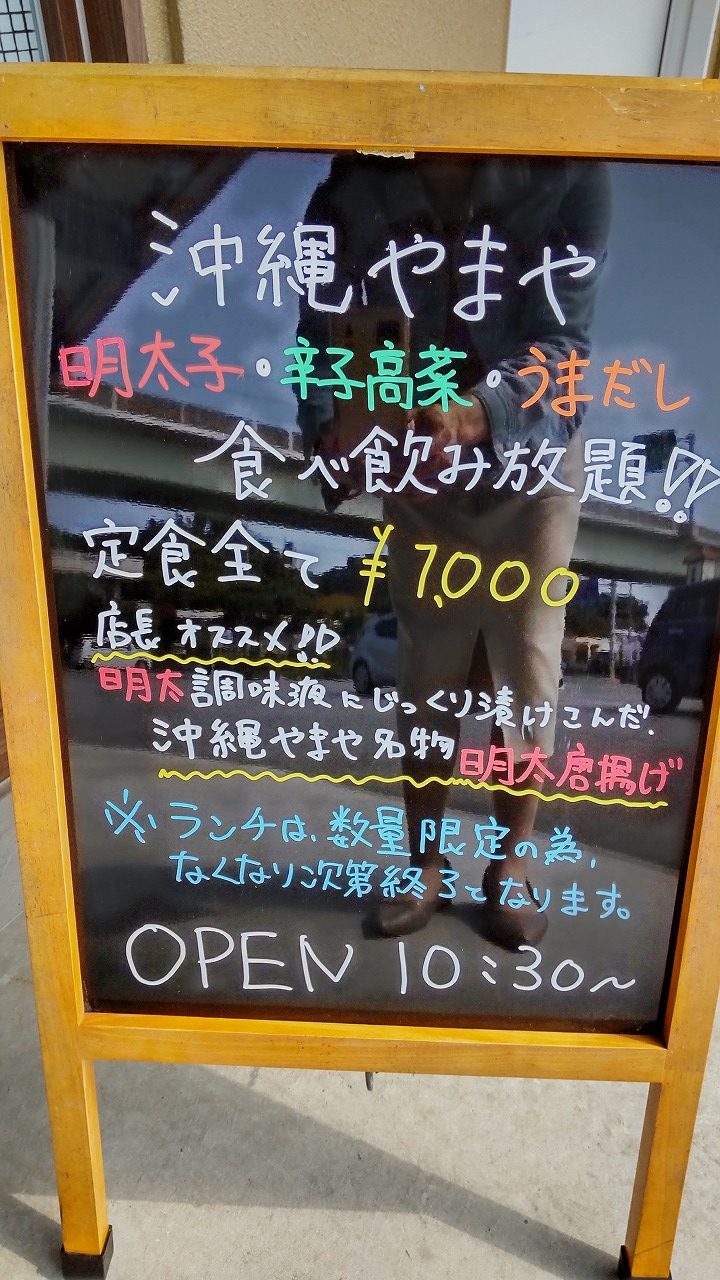 沖縄やまや
明太子・辛子高菜・うまだし
食べ飲み放題!!
定食全て ¥1,000
店長オススメ!!
明太調味液にじっくり漬けこんだ、
沖縄やまや名物明太唐揚げ
※ランチは、数量限定の為、
なくなり次第終了となります。
OPEN 10:30~